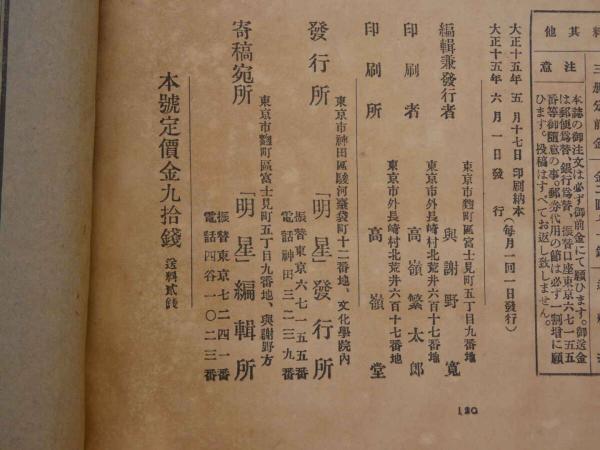 其他
注意
本誌の御注文は必ず御前金にて願ひます。御送金
は郵便爲替、銀行爲替、振替口座東京六七一五五
番等御隨意の事。郵券代用の節は必ず一割增に願
ひます。投稿はすべてお返し致しません。
大正十五年 五月十七日 印刷納本
大正十五年 六月一日 發行
(每月一回一日發行)
編輯兼發行者
東京市麴町區富士見町五丁目九番地
與謝野寬
印刷者
東京市外長崎村北荒井六百十七番地
高嶺繁太郎
印刷所
東京市外長崎村北荒井六百十七番地
高嶺堂
發行所
東京市神田區駿河臺袋町十二番地、文化學院內
「明星」發行所
振替東京六七一五五番
電話神田三二三九番
寄稿宛所
東京市麴町區富士見町五丁目九番地、與謝野方
「明星」編輯所
振替東京七二四一番
電話四谷一〇二三番
本號定價金九拾錢 送料貳錢
120